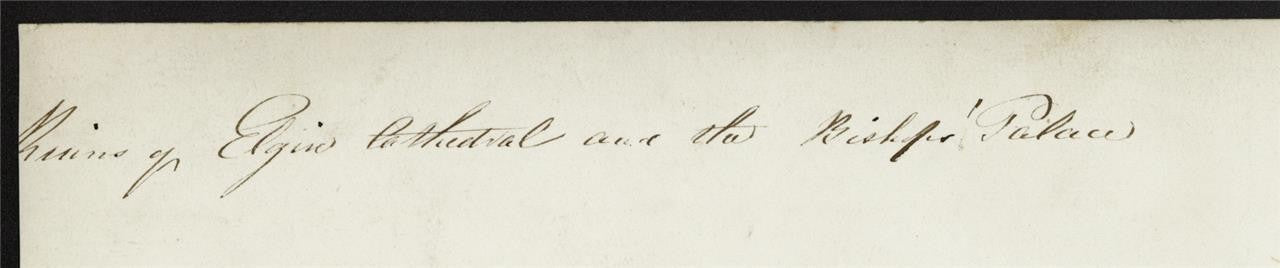 Ruins of Elgin Cathedral and the Bishps' Palace